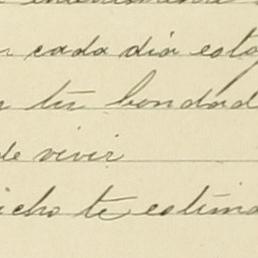 cada dia esto
tu bondad
de vivir
icho te estima